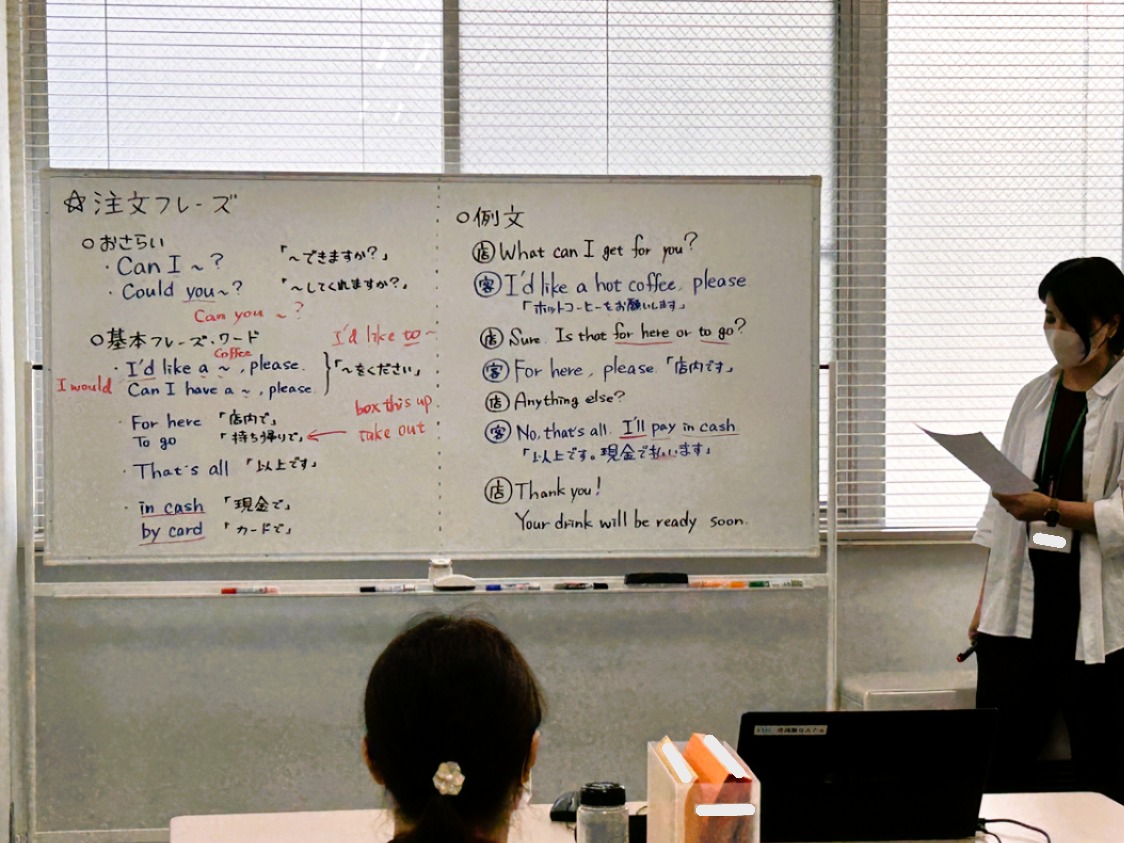 ☆注文フレーズ
○おさらい
・Can I ~? 「~できますか?」
・Could you~? 「~してくれますか?」
Can you ~?
○基本フレーズ・ワード
I'd like to ~
coffee
・I'd like a ~, please.
I would
Can I have a ~, please.
「~をください」
box this up
・For here 「店内で」
To go 「持ち帰りで」 ← take out
・That's all 「以上です」
・in cash 「現金で」
by card 「カードで」
○例文
店 What can I get for you?
客 I'd like a hot coffee, please
「ホットコーヒーをお願いします」
店 Sure. Is that for here or to go?
客 For here, please. 「店内です」
店 Anything else?
客 No, that's all. I'll pay in cash.
「以上です。現金で払います」
店 Thank you!
Your drink will be ready soon.